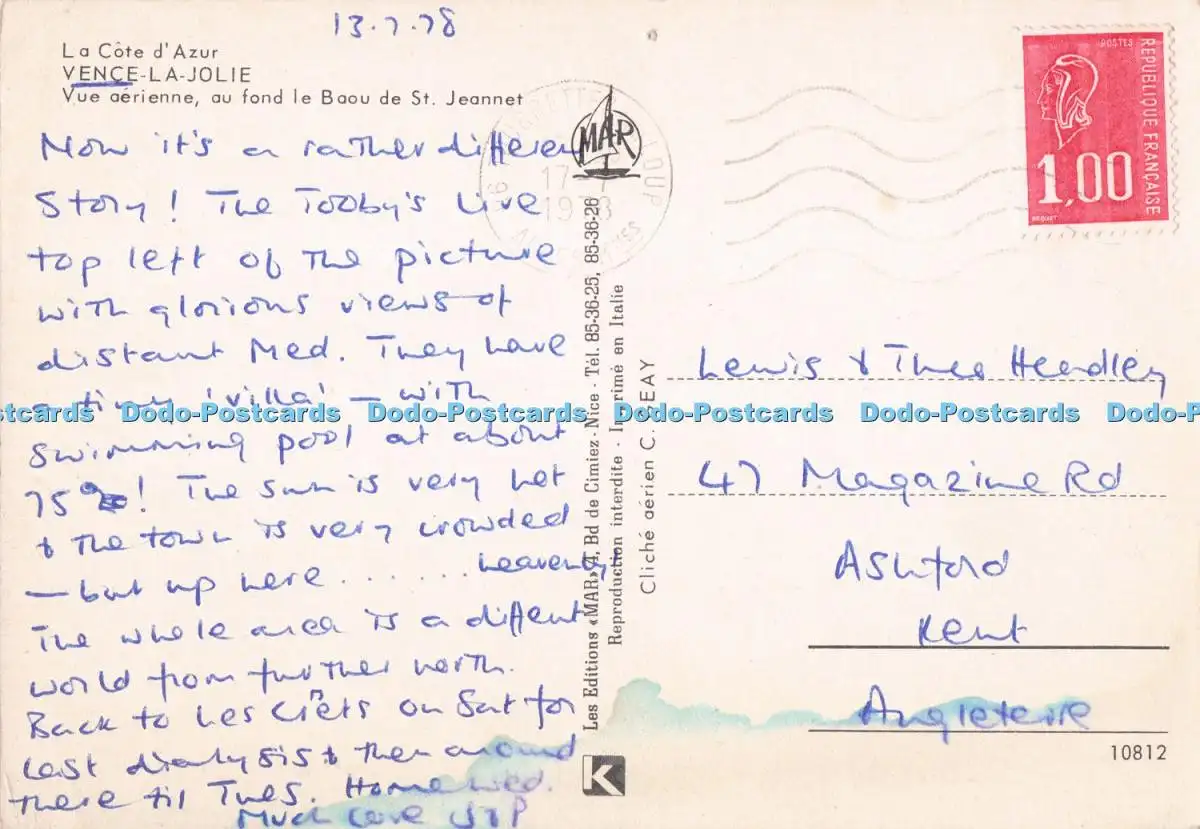 13.7.78
La Côte d'Azur
VENCE-LA-JOLIE
Vue aérienne, au fond le Baou de St. Jeannet
Now it's a rather different
Story! The Tooby's live
top left of the picture
with glorious views of
distant Med. They have
a tiny 'villa' - with
swimming pool at about
75°! The sun is very hot
& the town is very crowded
- but up here ...... heavenly
The whole area is a different
world from further north.
Back to Les on Sat for
last dialysis & then around
there til Tues. Home Wed.
Much love J & P
MAR
17-7
Les Editions «MAR» 4, Bd de Cimiez - Nice - Tél. 85-36-25, 85-36-26
Reproduction interdite - Imprimé en Italie
Cliché aérien C.
K
POSTES
REPUBLIQUE FRANÇAISE
1,00
Lewis & Thea Headley
47 Magazine Rd
Ashford
Kent
Angleterre
10812
Dodo-Postcards Dodo-Postcards Dodo-Postcards Dodo-Postcards